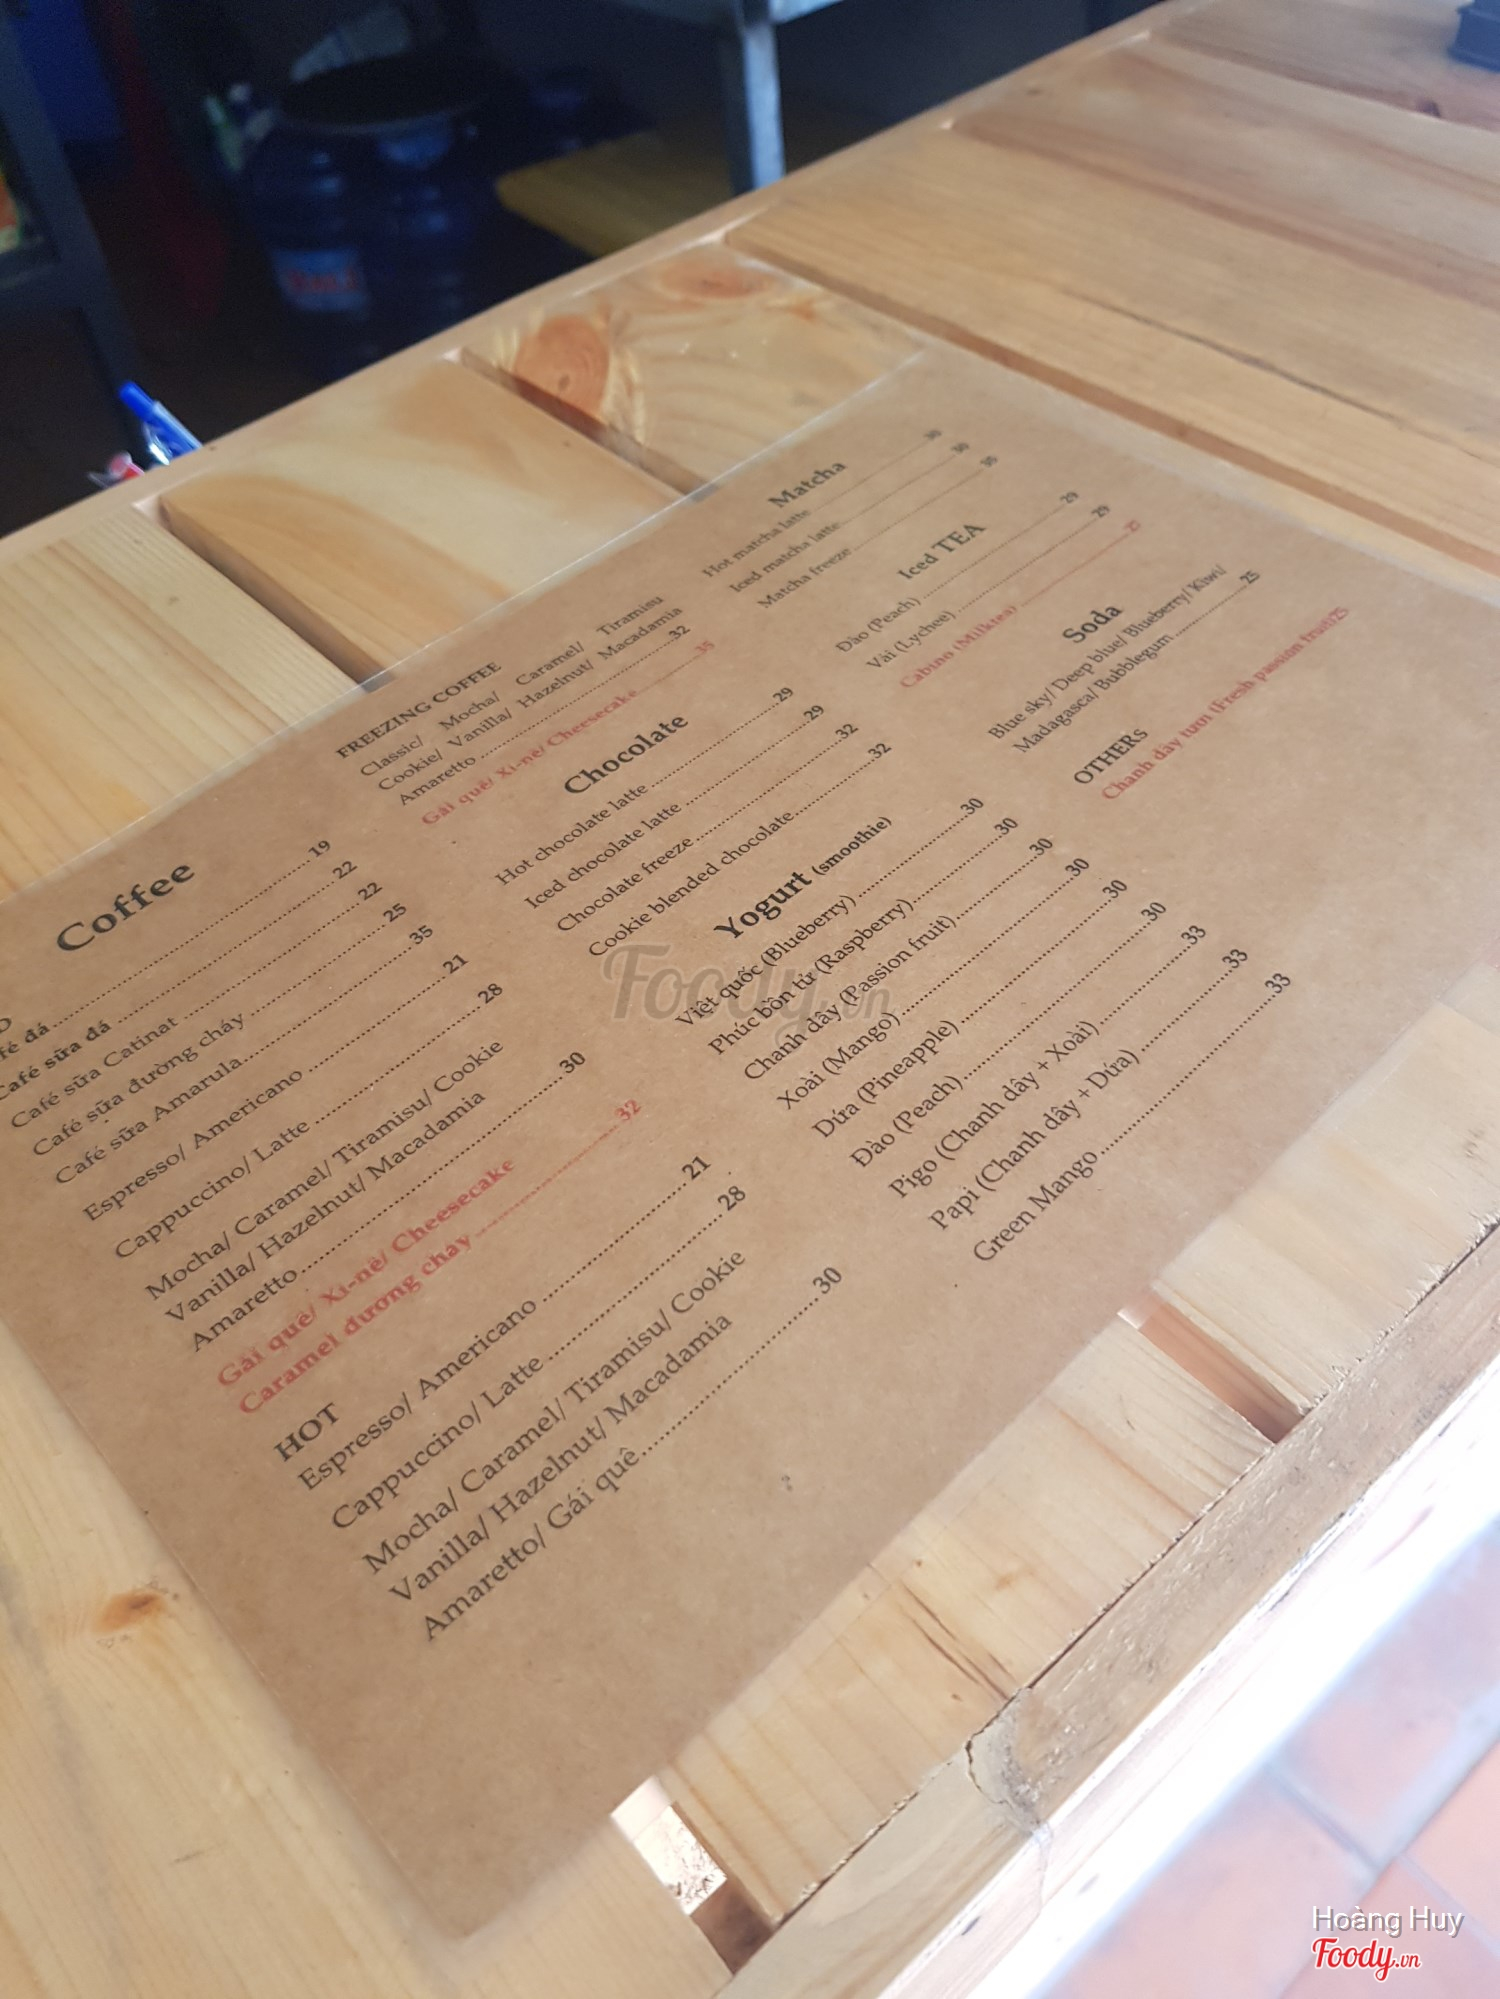 Coffee
fé đá 19
Café sữa đá 22
Café sữa Catinat 22
Café sữa đường cháy 25
Café sữa Amarula 35
Espresso/ Americano 21
Cappuccino/ Latte 28
Mocha/ Caramel/ Tiramisu/ Cookie
Vanilla/ Hazelnut/ Macadamia
Amaretto 30
Gái quê/ Xi-nê/ Cheesecake
Caramel đường cháy 32
HOT
Espresso/ Americano 21
Cappuccino/ Latte 28
Mocha/ Caramel/ Tiramisu/ Cookie
Vanilla/ Hazelnut/ Macadamia
Amaretto/ Gái quê 30
FREEZING COFFEE
Classic/ Mocha/ Caramel/ Tiramisu
Cookie/ Vanilla/ Hazelnut/ Macadamia
Amaretto 32
Gái quê/ Xi-nê/ Cheesecake 35
Chocolate
Hot chocolate latte 29
Iced chocolate latte 29
Chocolate freeze 32
Cookie blended chocolate 32
Yogurt (smoothie)
Việt quốc (Blueberry) 30
Phúc bồn tử (Raspberry) 30
Chanh dây (Passion fruit) 30
Xoài (Mango) 30
Dứa (Pineapple) 30
Đào (Peach) 30
Pigo (Chanh dây + Xoài) 33
Papi (Chanh dây + Dứa) 33
Green Mango 33
Matcha
Hot matcha latte 30
Iced matcha latte 30
Matcha freeze
Iced TEA
Đào (Peach) 29
Vải (Lychee) 29
Cabino (Milktea) 27
Soda
Blue sky/ Deep blue/ Blueberry/ Kiwi/
Madagasca/ Bubblegum 25
OTHERs
Chanh dây tươi (Fresh passion fruit)25
Foody.vn
Hoàng Huy
Foody.vn